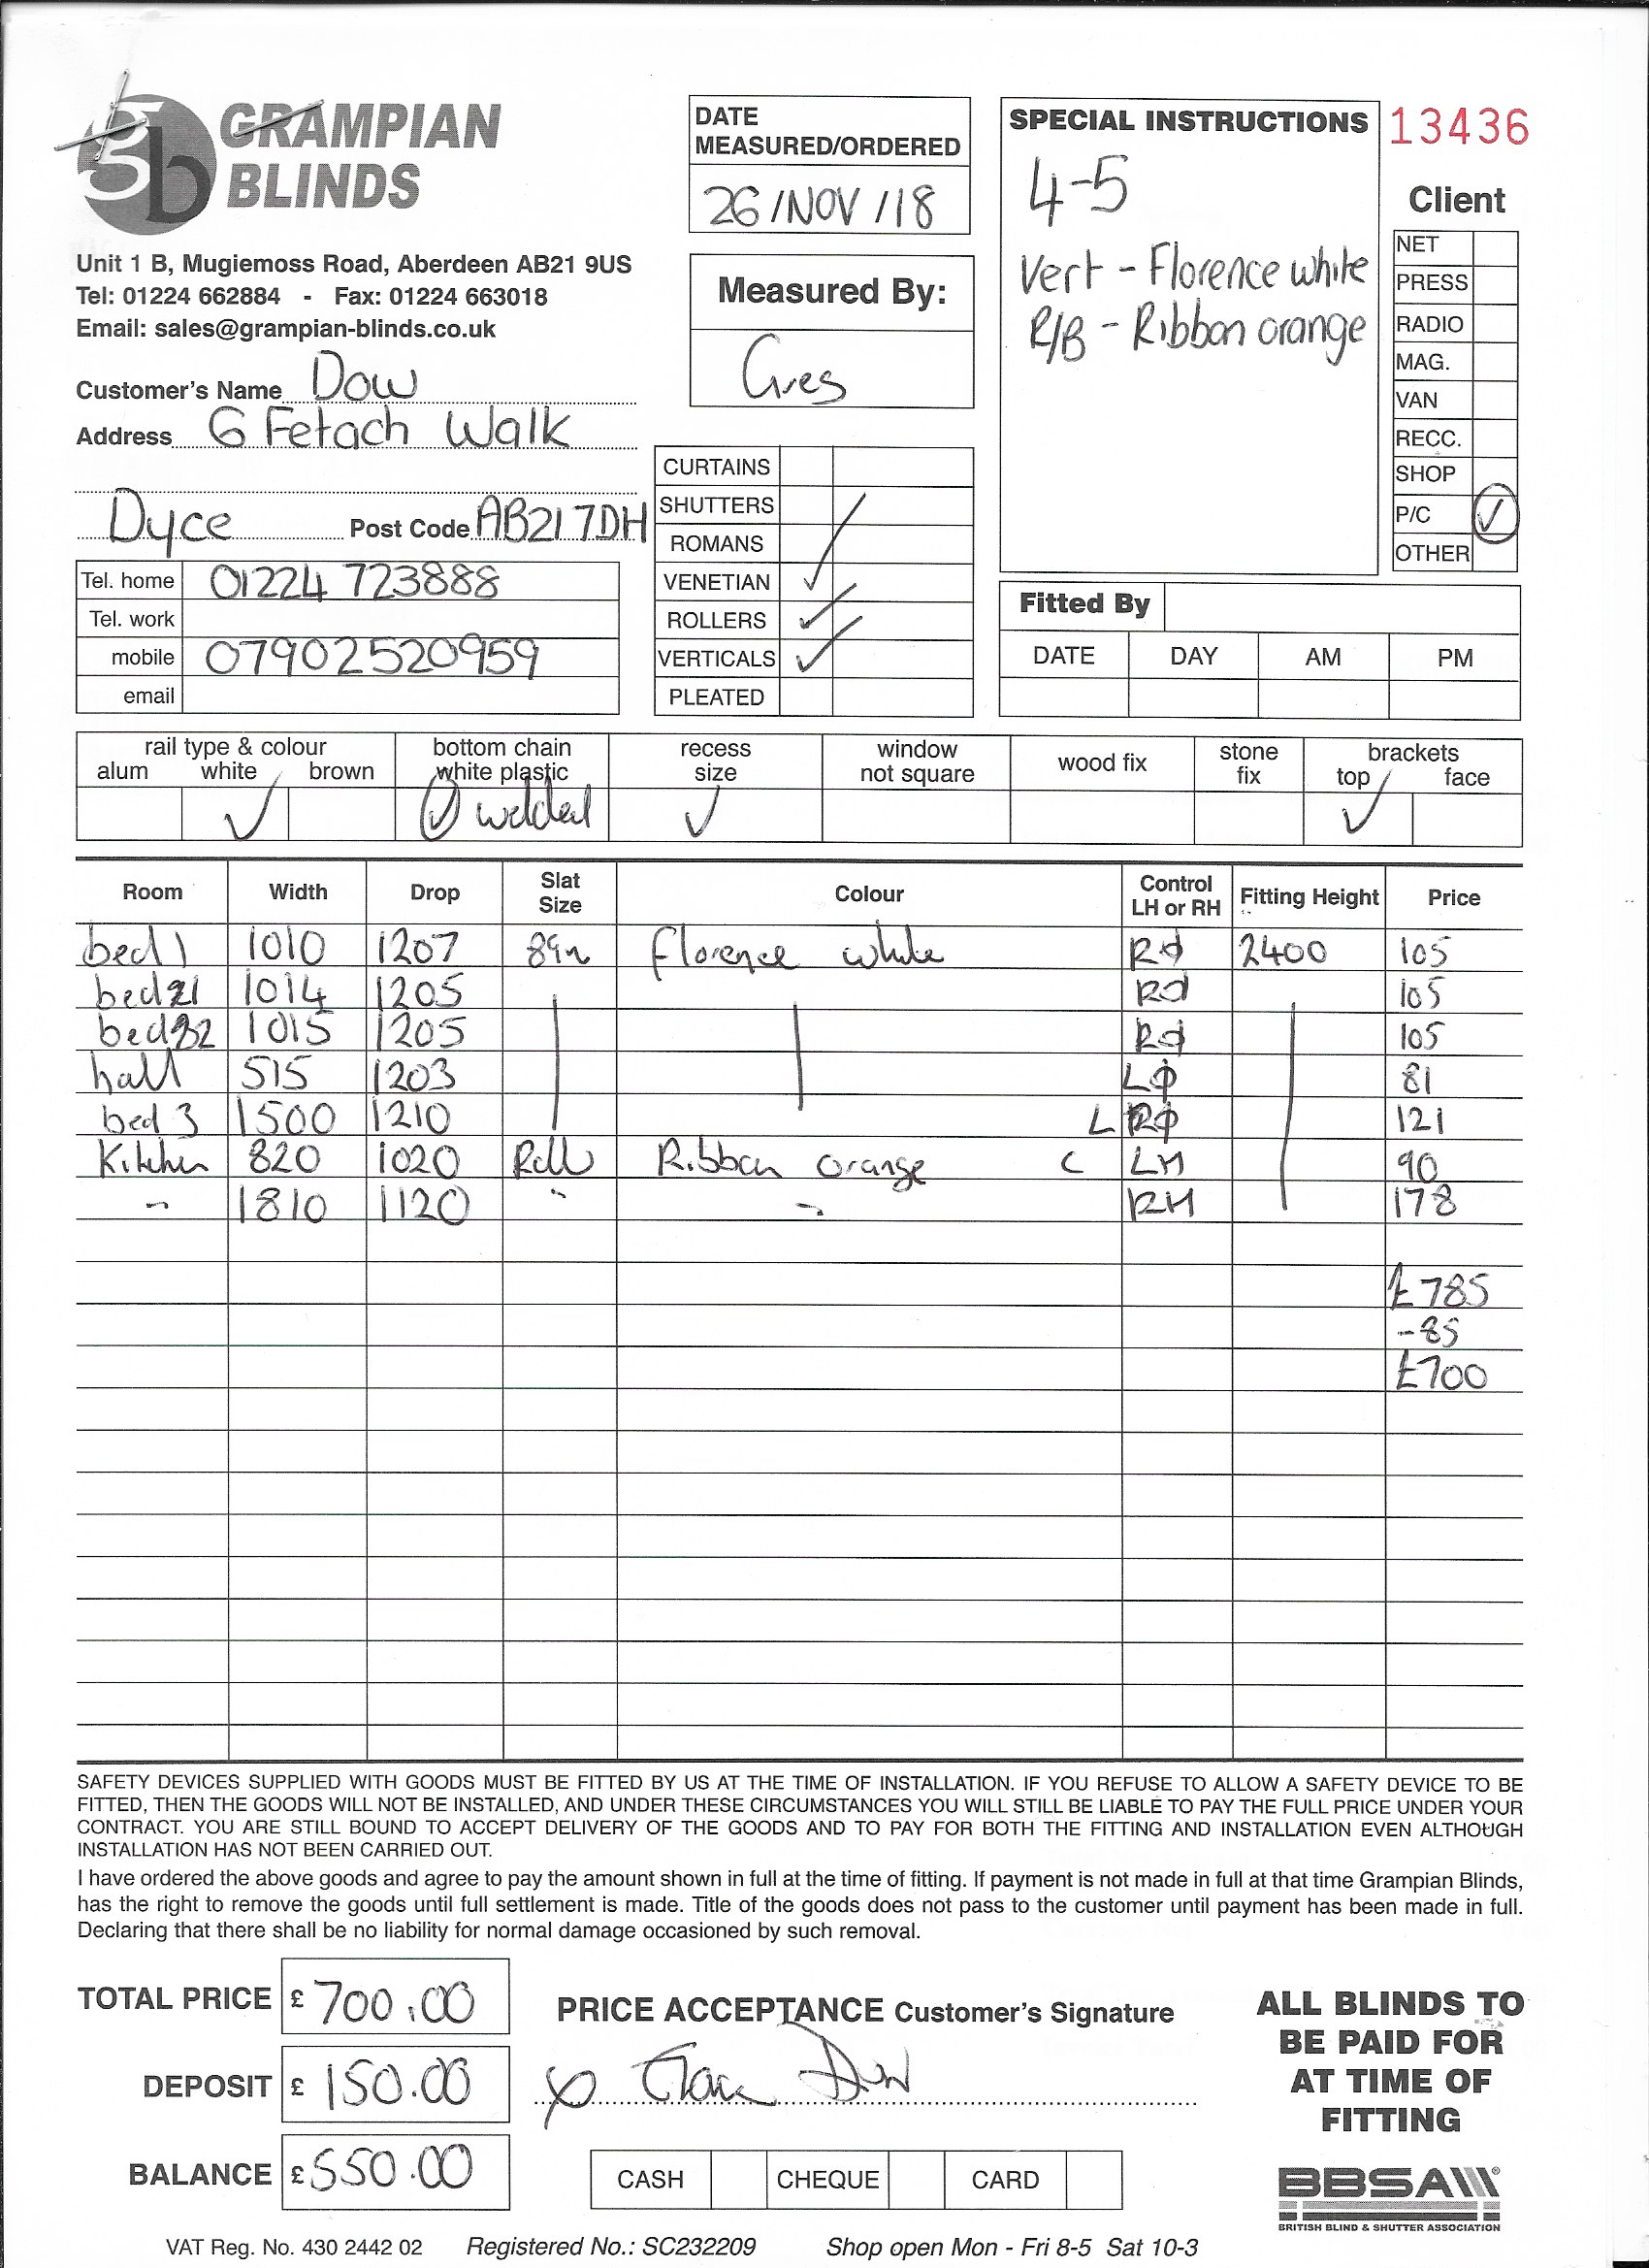 GRAMPIAN
BLINDS
Unit 1 B, Mugiemoss Road, Aberdeen AB21 9US
Tel: 01224 662884 - Fax: 01224 663018
Email: sales@grampian-blinds.co.uk
Customer's Name Dow
Address 6 Fetach Walk
Dyce Post Code AB21 7DH
Tel. home 01224 723888
Tel. work
mobile 07902520959
email
DATE
MEASURED/ORDERED
26/NOV/18
Measured By:
Greg
CURTAINS
SHUTTERS
ROMANS
VENETIAN ✓
ROLLERS ✓
VERTICALS ✓
PLEATED
SPECIAL INSTRUCTIONS
4-5
Vert - Florence white
R/B - Ribbon orange
13436
Client
NET
PRESS
RADIO
MAG.
VAN
RECC.
SHOP
P/C ✓
OTHER
Fitted By
DATE DAY AM PM
rail type & colour bottom chain recess window wood fix stone brackets
alum white brown white plastic size not square fix top face
✓ ✓ welded ✓ ✓
Room Width Drop Slat Size Colour Control LH or RH Fitting Height Price
bed 1 1010 1207 89m Florence white 2400 105
1014 1205 105
1015 1205 105
hall 515 1203 81
bed 3 1500 1210 121
Kitchen 820 1020 Roll Ribbon orange C LH 90
" 1810 1120 " " RH 178
£785
-85
£700
SAFETY DEVICES SUPPLIED WITH GOODS MUST BE FITTED BY US AT THE TIME OF INSTALLATION. IF YOU REFUSE TO ALLOW A SAFETY DEVICE TO BE
FITTED, THEN THE GOODS WILL NOT BE INSTALLED, AND UNDER THESE CIRCUMSTANCES YOU WILL STILL BE LIABLE TO PAY THE FULL PRICE UNDER YOUR
CONTRACT. YOU ARE STILL BOUND TO ACCEPT DELIVERY OF THE GOODS AND TO PAY FOR BOTH THE FITTING AND INSTALLATION EVEN ALTHOUGH
INSTALLATION HAS NOT BEEN CARRIED OUT.
I have ordered the above goods and agree to pay the amount shown in full at the time of fitting. If payment is not made in full at that time Grampian Blinds,
has the right to remove the goods until full settlement is made. Title of the goods does not pass to the customer until payment has been made in full.
Declaring that there shall be no liability for normal damage occasioned by such removal.
TOTAL PRICE £ 700.00
DEPOSIT £ 150.00
BALANCE £ 550.00
PRICE ACCEPTANCE Customer's Signature
CASH CHEQUE CARD
ALL BLINDS TO
BE PAID FOR
AT TIME OF
FITTING
BBSA
BRITISH BLIND & SHUTTER ASSOCIATION
VAT Reg. No. 430 2442 02 Registered No.: SC232209 Shop open Mon - Fri 8-5 Sat 10-3